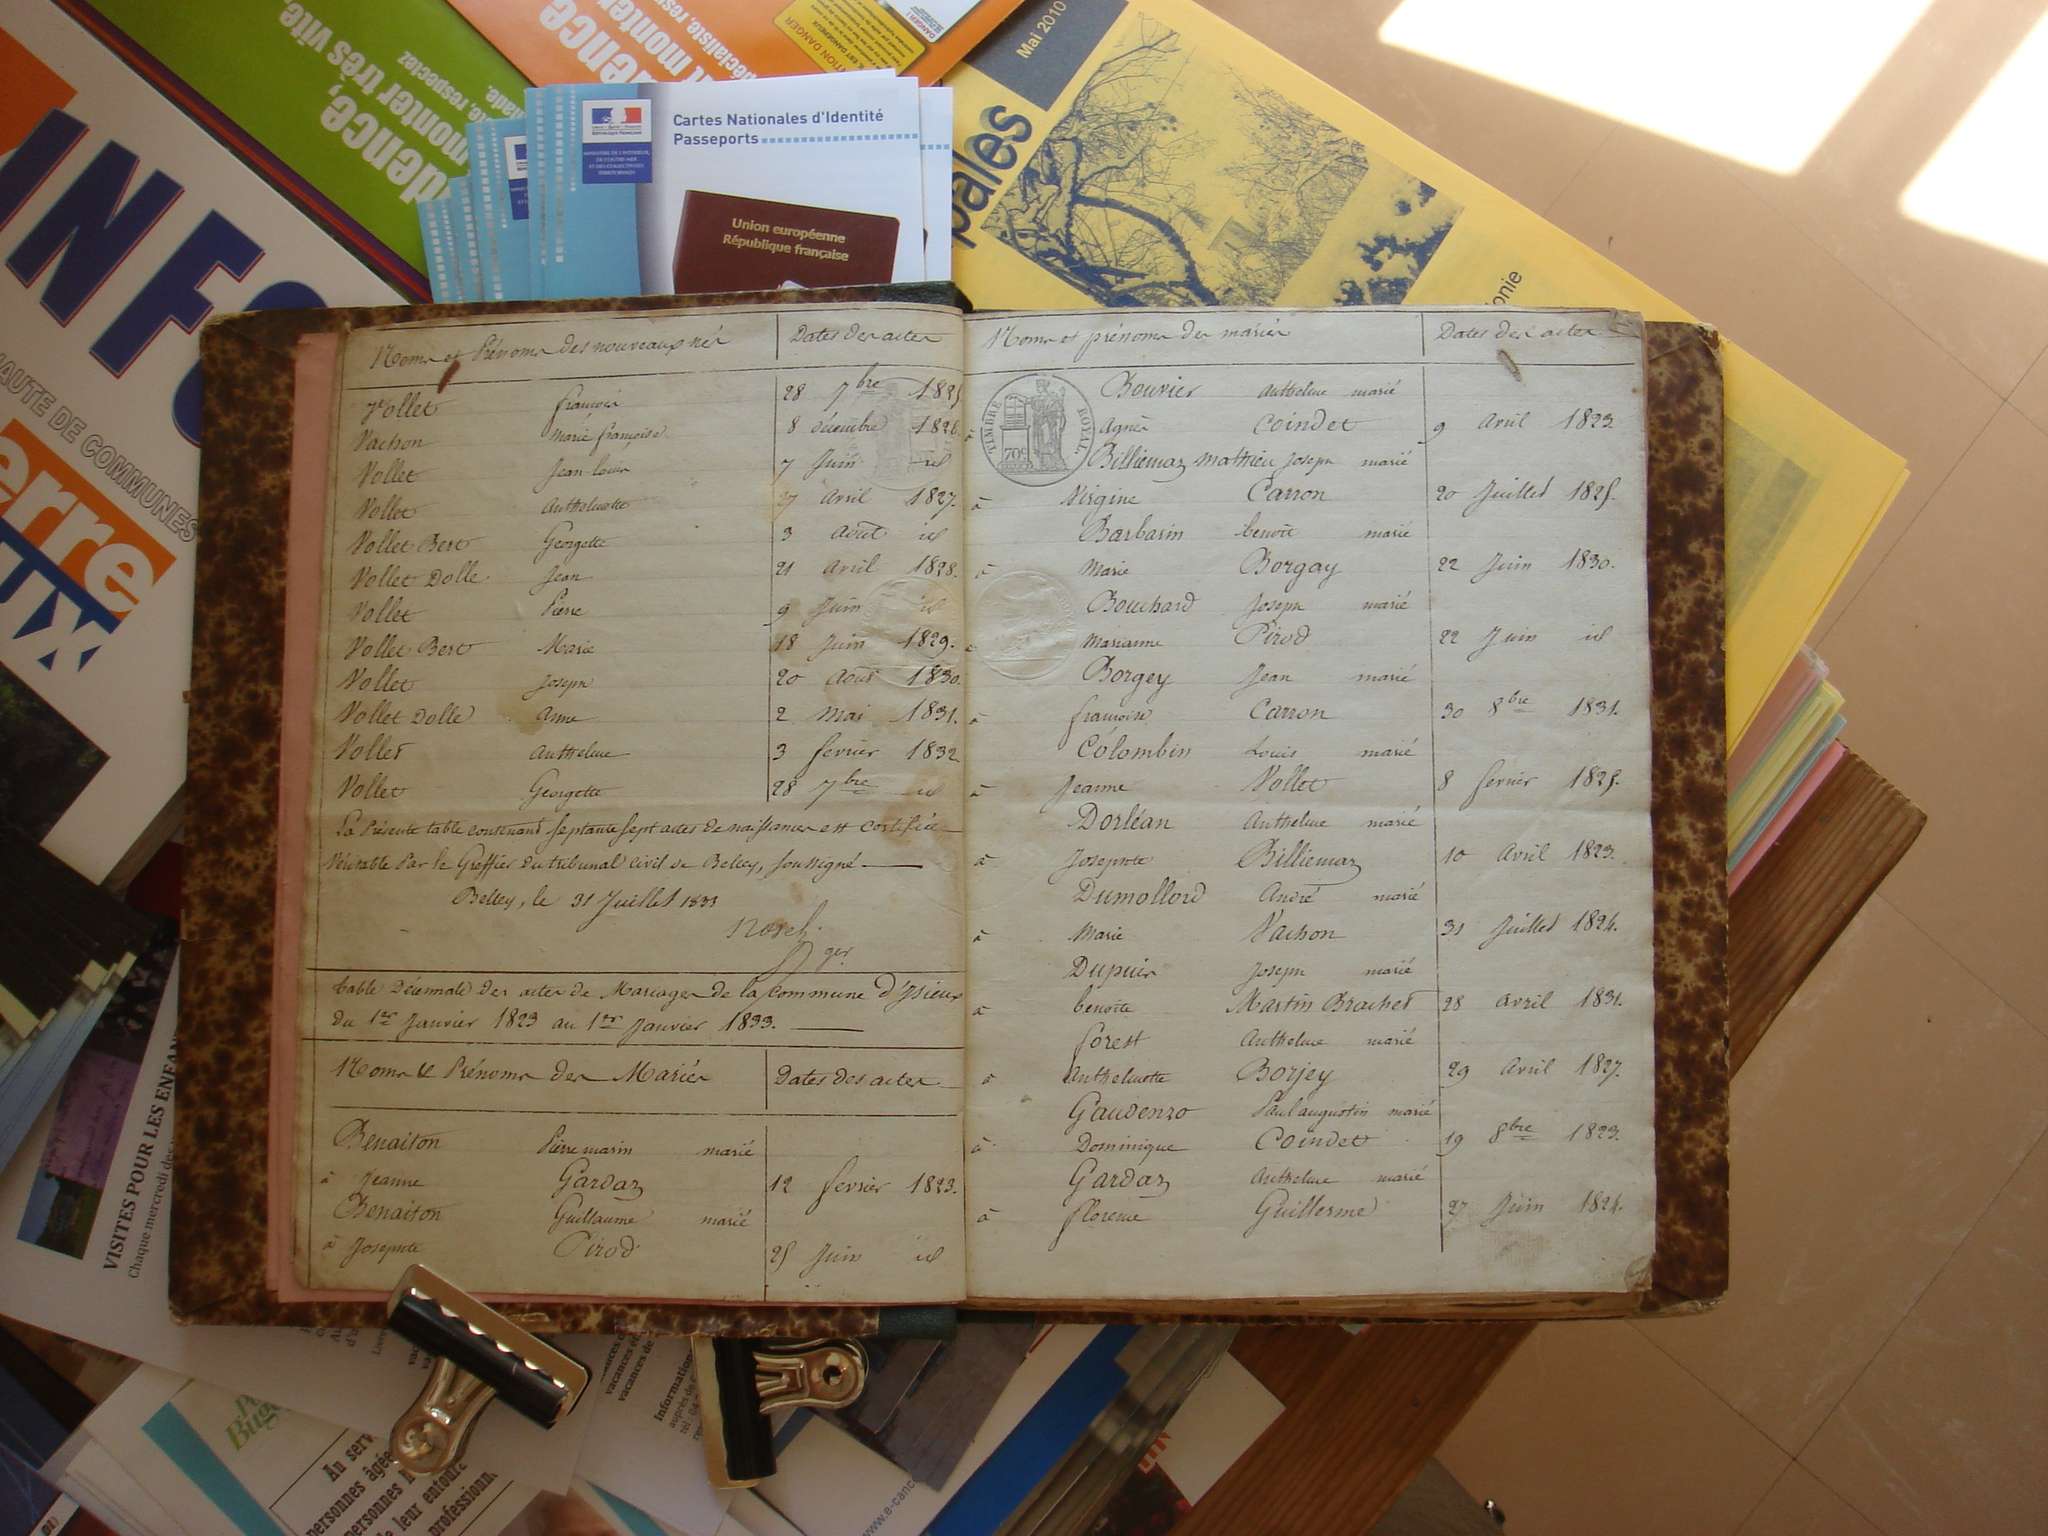 INFO
HAUTE DE COMMUNES
erre
UX
dence,
monter très vite,
lade, respectez
dence
t monter
pécialiste, res
DANGER!
TION DANGER
Cartes Nationales d'Identité
Passeports
RÉPUBLIQUE FRANÇAISE
Union européenne
République française
Mai 2010
pales
onie
Noms et Prénoms des nouveaux nés Dates des actes
Vollet françois 28 7bre 1825
Vachon Marie françoise 8 décembre 1826
Vollet Jean Louis 7 Juin id
Vollet Anthelmette 27 avril 1827.
Vollet Bert Georgette 3 août id
Vollet Dolle Jean 21 avril 1828.
Vollet Pierre 9 Juin id
Vollet Bert Marie 18 Juin 1829.
Vollet Joseph 20 Août 1830
Vollet Dolle Anne 2 Mai 1831.
Vollet Anthelme 3 fevrier 1832
Vollet Georgette 28 7bre id
La Présente table contenant septante sept actes de naissances est certifiée
Véritable Par le Greffier du tribunal civil de Belley, soussigné
Belley, le 31 Juillet 1833
ger
table Décennale des actes de Mariages de la commune d'ysieux
du 1er Janvier 1823 au 1er Janvier 1833.
Noms & Prénoms des Mariés Dates des actes
Benaiton Pierre marin marié
à Jeanne Gardaz 12 fevrier 1823.
Benaiton Guillaume marié
à Josephte Pirod 25 Juin id
Noms et prénoms des mariés Dates des actes
TIMBRE ROYAL
70c
Bouvier Anthelme marié
à Agnès Coindet 9 Avril 1823
Billiemaz Mathieu Joseph marié
à Virgine Carron 20 Juillet 1825.
Barbarin benoît marié
à Marie Borgay 22 Juin 1830.
Bouchard Joseph marié
à Marianne Pirod 22 Juin id
Borgey Jean marié
à françoise Carron 30 8bre 1831.
Colombin Louis marié
à Jeanne Vollet 8 fevrier 1825.
Dorléan Anthelme marié
à Josephte Billiemaz 10 Avril 1823.
Dumollard André marié
à Marie Vachon 31 Juillet 1824.
Dupuis Joseph marié
à benoite Martin Brachet 28 avril 1831.
forest Anthelme marié
à Anthelmette Borjey 29 Avril 1827.
Gaudenzo Paul augustin marié
à Dominique Coindet 19 8bre 1823.
Gardaz Anthelme marié
à florence Guillerme 27 Juin 1824.
VISITES POUR LES ENFAN
Chaque mercredi des
vacances de
vacances de
Information
auprès de
Bugey
Au serv
personnes âgée
personnes
leur entoura
professionne
www.e-canc